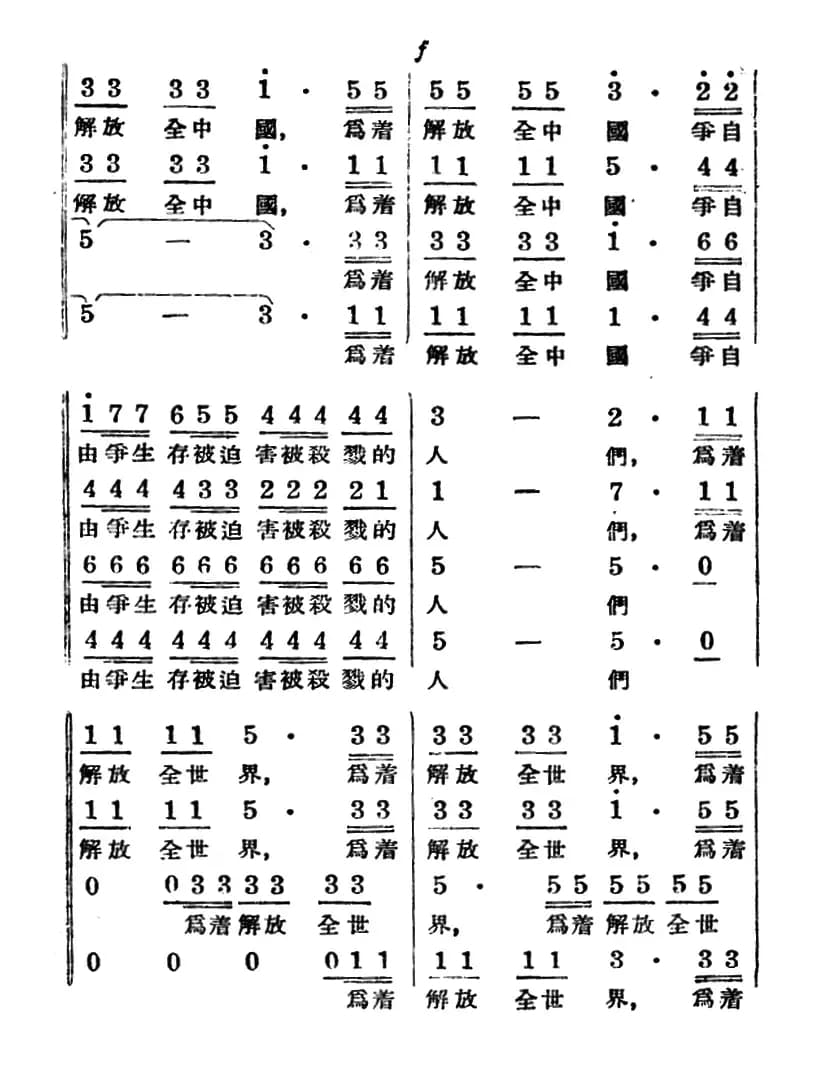 f
3 3 3 3 i · 5 5 5 5 5 5 3 · 2 2
解放 全中 國, 爲着 解放 全中 國 爭自
3 3 3 3 i · 1 1 1 1 1 1 5 · 4 4
解放 全中 國, 爲着 解放 全中 國 爭自
5 — 3 · 3 3 3 3 3 3 i · 6 6
爲着 解放 全中 國 爭自
5 — 3 · 1 1 1 1 1 1 1 · 4 4
爲着 解放 全中 國 爭自
i 7 7 6 5 5 4 4 4 4 4 3 — 2 · 1 1
由爭生 存被迫 害被殺 戮的 人 們, 爲着
4 4 4 4 3 3 2 2 2 2 1 1 — 7 · 1 1
由爭生 存被迫 害被殺 戮的 人 們, 爲着
6 6 6 6 6 6 6 6 6 6 6 5 — 5 · 0
由爭生 存被迫 害被殺 戮的 人 們
4 4 4 4 4 4 4 4 4 4 4 5 — 5 · 0
由爭生 存被迫 害被殺 戮的 人 們
1 1 1 1 5 · 3 3 3 3 3 3 i · 5 5
解放 全世 界, 爲着 解放 全世 界, 爲着
1 1 1 1 5 · 3 3 3 3 3 3 i · 5 5
解放 全世 界, 爲着 解放 全世 界, 爲着
0 0 3 3 3 3 3 3 5 · 5 5 5 5 5 5
爲着 解放 全世 界, 爲着 解放 全世
0 0 0 0 1 1 1 1 1 1 3 · 3 3
爲着 解放 全世 界, 爲着